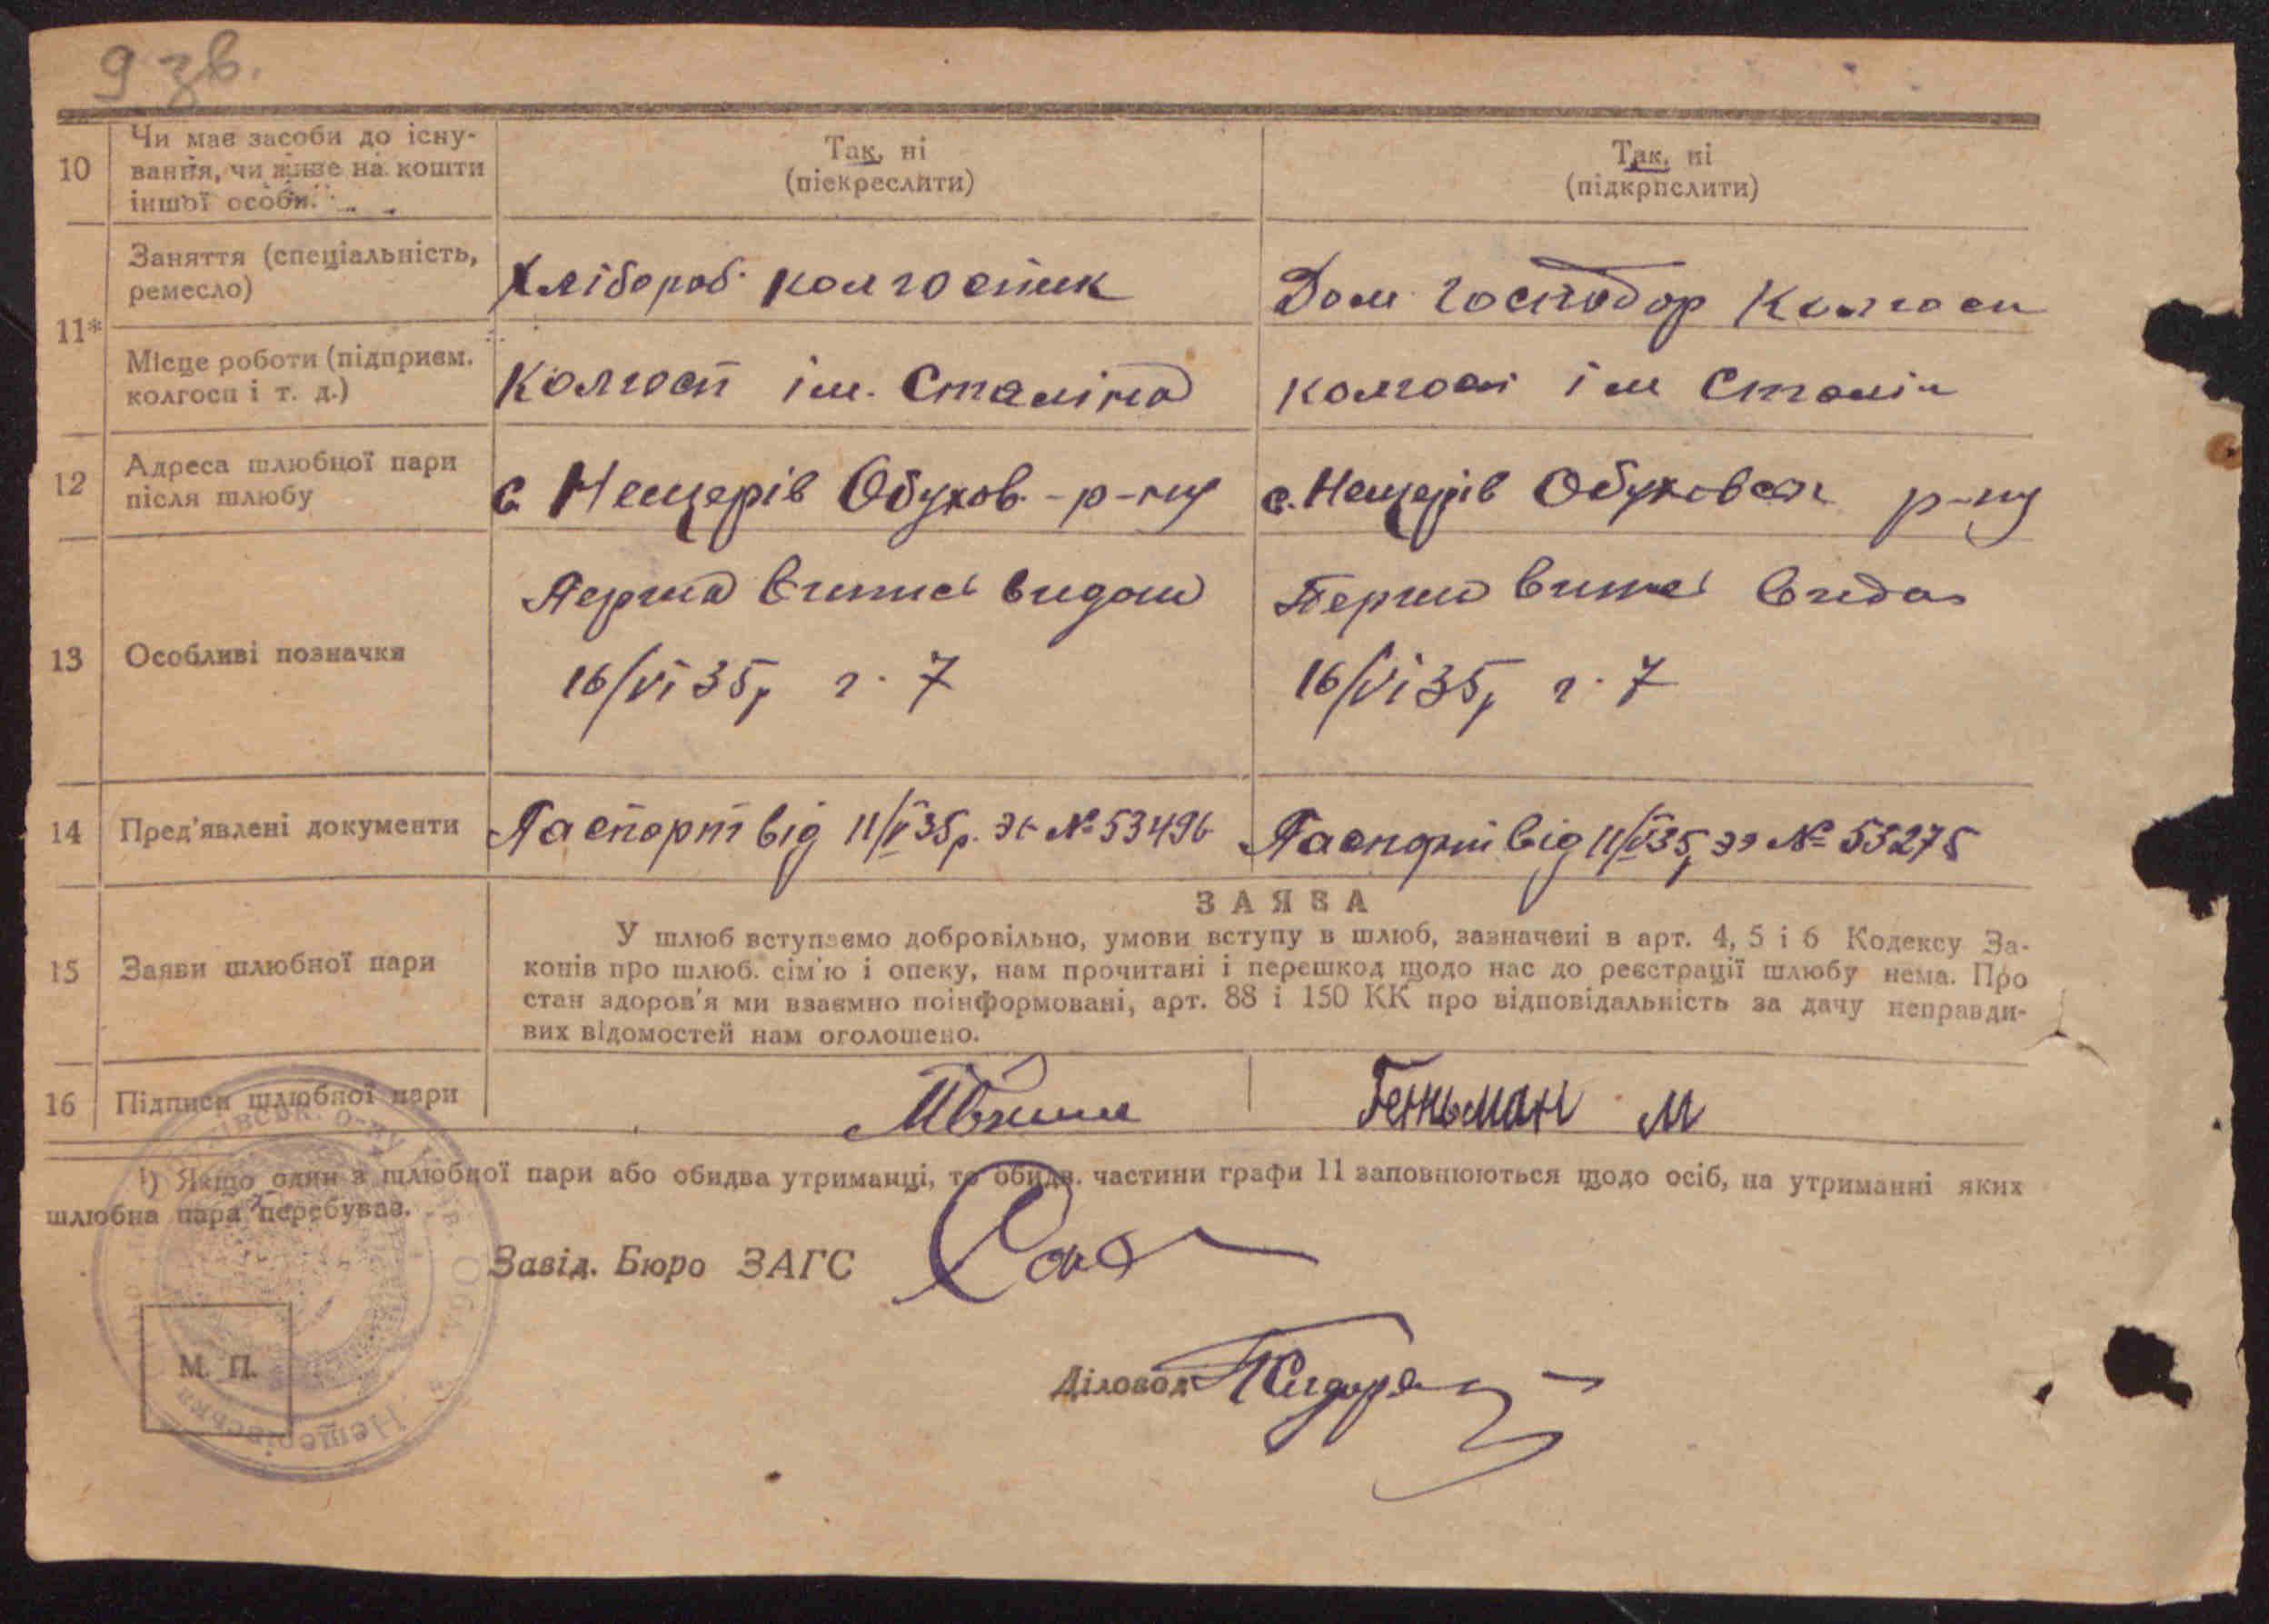 9 зв.
10
Чи має засоби до існу-
вання, чи живе на кошти
іншої особи.
Так, ні
(піекреслити)
Так, ні
(підкрпслити)
11*
Заняття (спеціальність,
ремесло)
Хлібороб колгоспник
Дом Господор Колгосп
Місце роботи (підприєм.
колгосп і т. д.)
Колгосп ім. Сталіна
колгосп ім Сталін
12
Адреса шлюбної пари
після шлюбу
с. Нещерів Обухов-р-ну
с. Нещерів Обуховск р-ну
13
Особливі позначки
Перша випись видана
Перша випись видана
16/VI 35р г. 7
16/VI 35р г. 7
14
Пред'явлені документи
Паспорт від 11/V 35р. № 53496
Паспорт від 11/V 35р № 53275
15
Заяви шлюбної пари
ЗАЯВА
У шлюб вступаємо добровільно, умови вступу в шлюб, зазначені в арт. 4, 5 і 6 Кодексу За-
конів про шлюб. сім'ю і опеку, нам прочитані і перешкод щодо нас до реєстрації шлюбу нема. Про
стан здоров'я ми взаємно поінформовані, арт. 88 і 150 КК про відповідальність за дачу неправди-
вих відомостей нам оголошено.
16
Підписи шлюбної пари
Геньман М
¹) Якщо один з шлюбної пари або обидва утриманці, то обидв. частини графи 11 заповнюються щодо осіб, на утриманні яких
шлюбна пара перебуває.
Завід. Бюро ЗАГС
М. П.
Діловод
Нещерівська